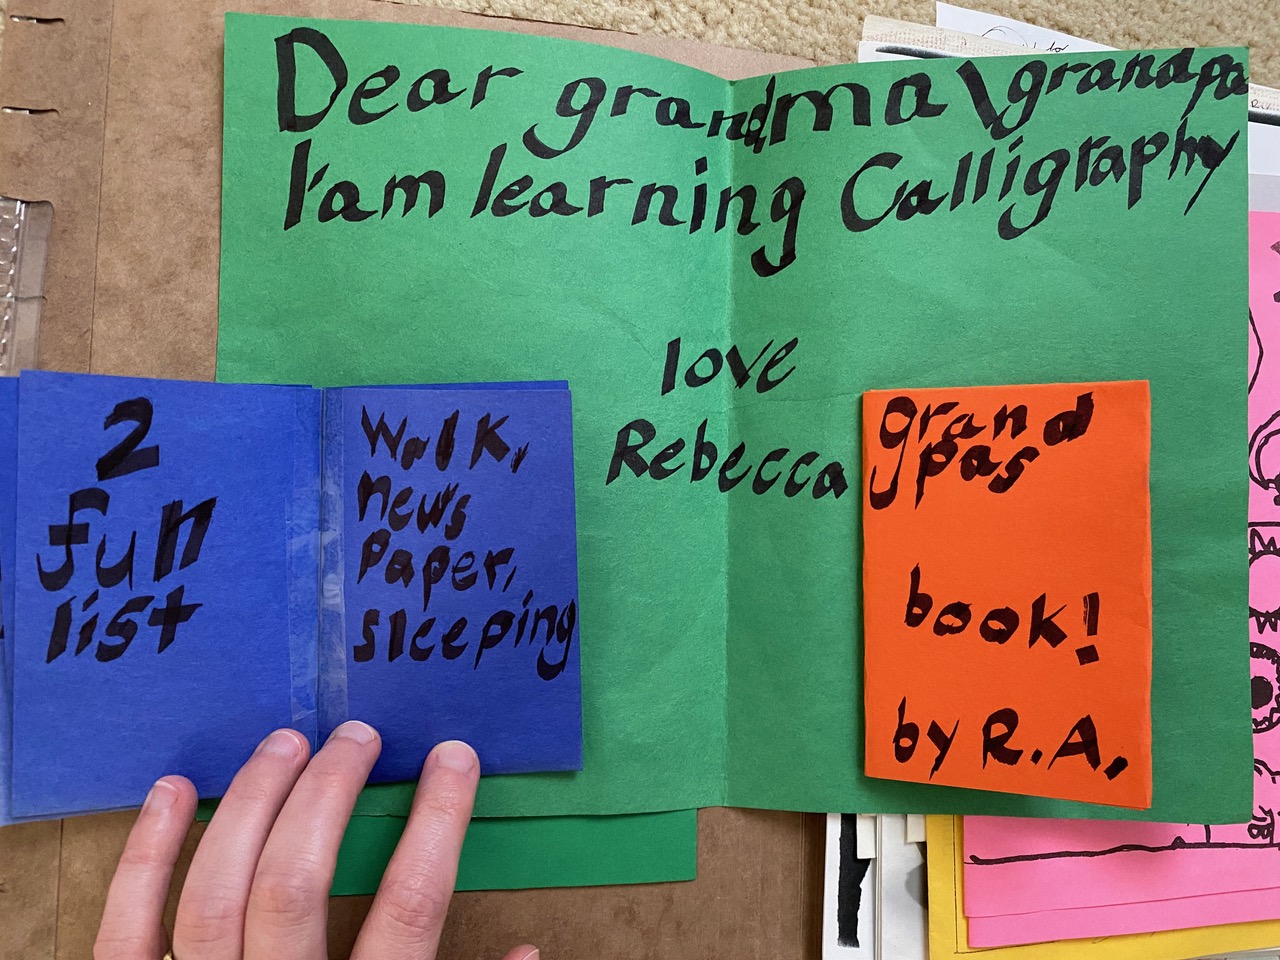 Dear grandma\grandpa
I'am learning Calligraphy
love
Rebecca
2
fun
list
Walk,
news
paper,
sleeping
grand
pas
book!
by R.A.